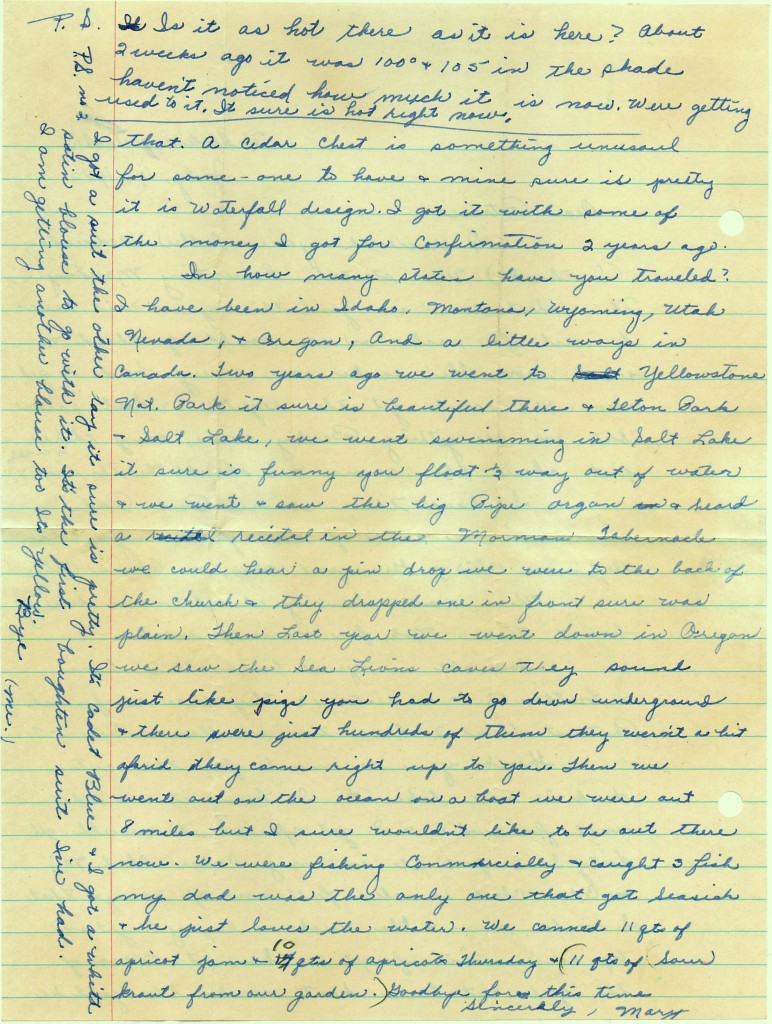 P.S. Is it as hot there as it is here? About
2 weeks ago it was 100° & 105 in the shade
haven't noticed how much it is now. Were getting
used to it. It sure is hot right now.
that. A cedar chest is something unusoul
for some-one to have & mine sure is pretty
it is Waterfall design. I got it with some of
the money I got for Confirmation 2 years ago.
In how many states have you traveled?
I have been in Idaho, Montana, Wyoming, Utah
Nevada, & Oregon, And a little ways in
Canada. Two years ago we went to Yellowstone
Nat. Park it sure is beautiful there & Teton Park
& Salt Lake, we went swimming in Salt Lake
it sure is funny you float ½ way out of water
& we went & saw the big Pipe organ & heard
a recital in the Morman Tabernacle
we could hear a pin drop we were to the back of
the church & they dropped one in front sure was
plain. Then Last year we went down in Oregon
we saw the Sea Lions caves they sound
just like pigs you had to go down underground
& there were just hundreds of them they weren't a bit
afarid they came right up to you. Then we
went out on the ocean on a boat we were out
8 miles but I sure wouldn't like to be out there
now. We were fishing Commercially & caught 3 fish
my dad was the only one that got seasick
& he just loves the water. We canned 11 qts of
apricot jam & 10 qts of apricots Thursday & (11 qts of Sour
kraut from our garden.) Goodbye for this time
Sincerely, Mary
P.S. no 2 I got a suit the other day it sure is pretty. Its Cadet Blue & I got a white
satin blouse to go with it. It's the first boughten suit I've had.
I am getting another blouse too Its yellow.
Bye (me.)